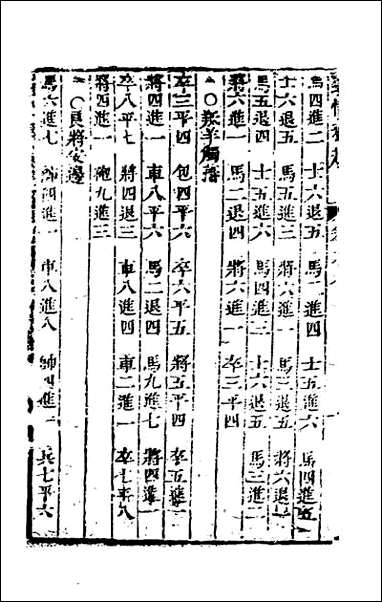 馬四進二　士六退五　馬二進四　士五進六　馬四進五
士六退五　馬五進三　將六進一　馬三退五　將六退一
馬五退四　士五進六　馬四進三　士六退五　馬三進二
將六進一　馬二退四　將六進一　卒三平四
○羝羊觸藩
卒三平四　包四平六　卒六平五　將五平四　卒五進一
將四進一　車八平六　馬二退四　馬九進七　將四進一
卒八平七　將四退三　車八進四　車二進一　卒七平八
將四進一　砲九進三
○良將安邊
馬六進七　帥四進一　車八進八　帥四進一　兵七平六